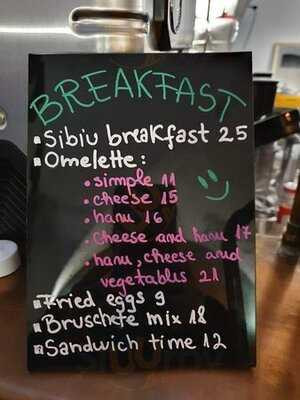 BREAKFAST
▪Sibiu breakfast 25
▪Omelette:
•simple 11
•cheese 15
•hanu 16
•Cheese and hanu 17
•hanu, cheese and
vegetables 21
▪Fried eggs 9
▪Bruschete mix 18
▪Sandwich time 12